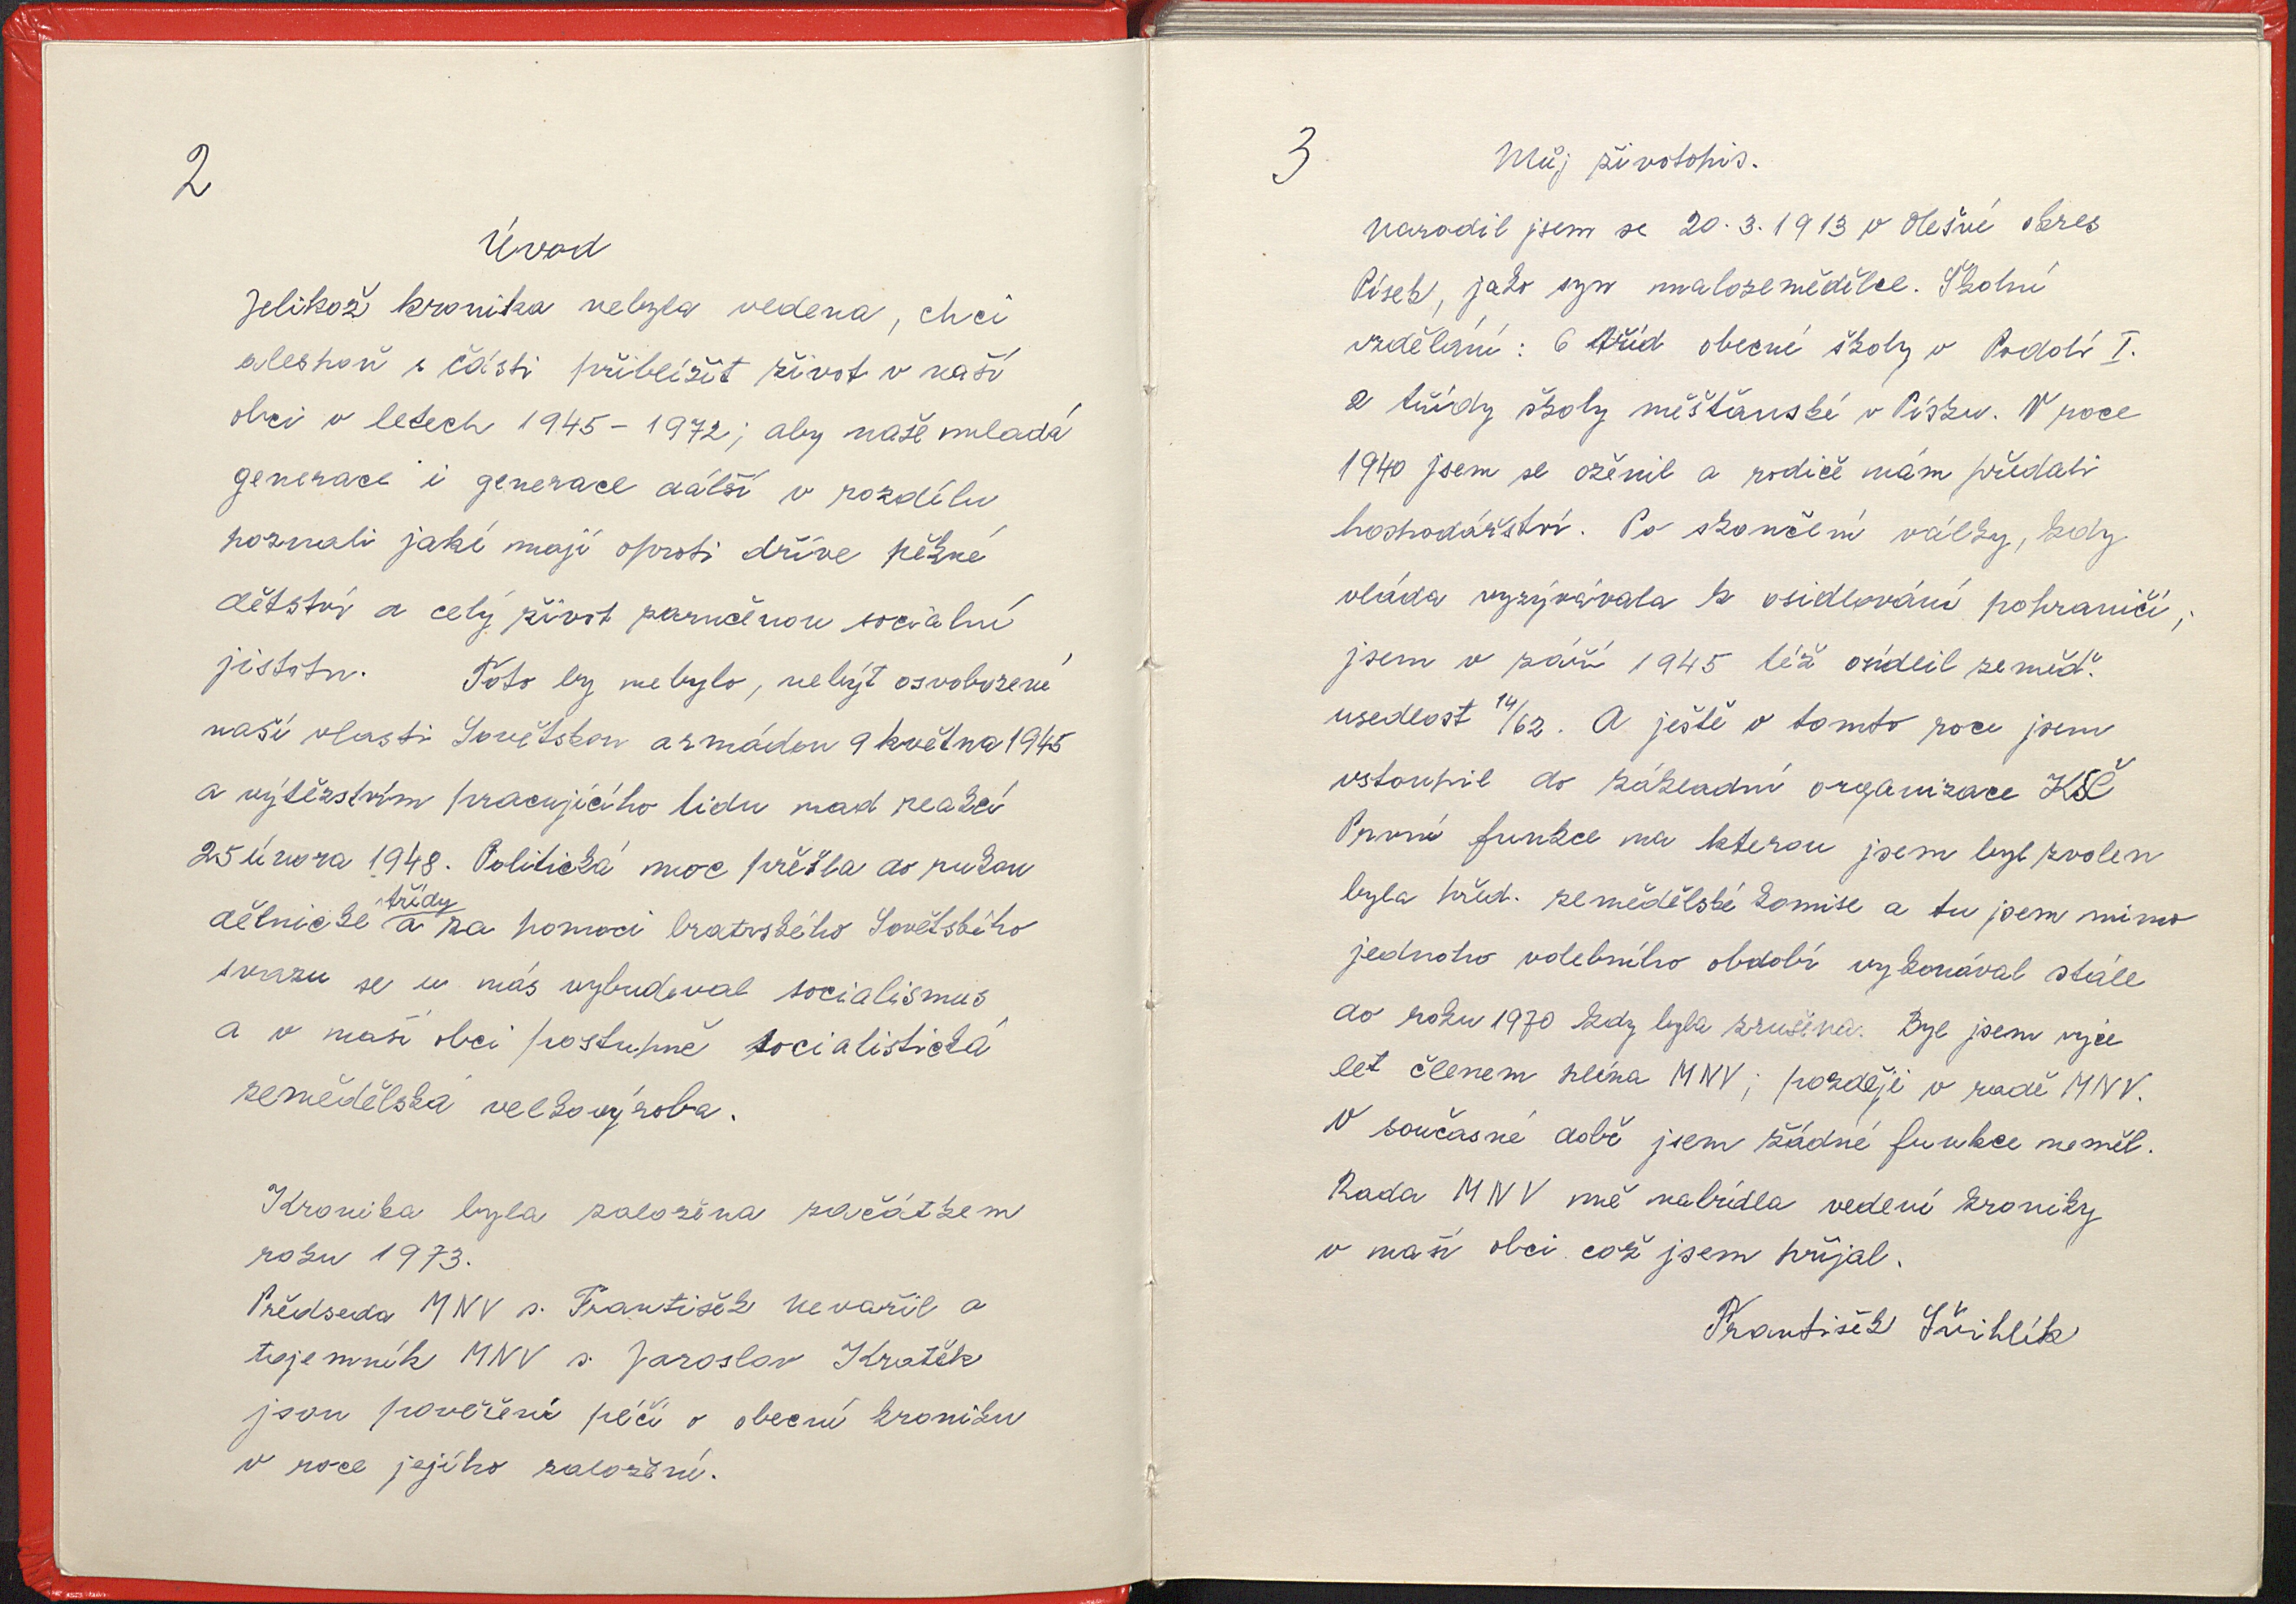 2
Úvod
Jelikož kronika nebyla vedena, chci
alespoň s části přiblížit život v naší
obci v letech 1945 - 1972; aby naše mladá
generace i generace další v rozdílu
poznali jaké mají oproti dříve pěkné
dětství a celý život zaručenou sociální
jistotu. Toto by nebylo, nebýt osvobození
naší vlasti Sovětskou armádou 9 května 1945
a výtězstvím pracujícího lidu nad reakcí
25 února 1948. Politická moc přešla do rukou
dělnické třídy a za pomoci bratrského Sovětského
svazu se u nás vybudoval socialismus
a v naší obci postupně socialistická
zemědělská velkovýroba.
Kronika byla založena začátkem
roku 1973.
Předseda MNV s. František Nevařil a
tajemník MNV s. Jaroslav Kratěk
jsou pověřeni péčí o obecní kroniku
v roce jejího založení.
3
Můj životopis.
Narodil jsem se 20. 3. 1913 v Olešné okres
Písek, jako syn malozemědělce. Školní
vzdělání: 6 tříd obecné školy v Podolí I.
2 třídy školy měšťanské v Písku. V roce
1940 jsem se oženil a rodiče nám předali
hospodářství. Po skončení války, kdy
vláda vyzývávala k osidlování pohraničí,
jsem v září 1945 též osídlil zeměď.
usedlost 14/62. A ještě v tomto roce jsem
vstoupil do základní organizace KSČ
První funkce na kterou jsem byl zvolen
byla před. zemědělské komise a tu jsem mimo
jednoho volebního období vykonával stále
do roku 1970 kdy byla zrušena. Byl jsem více
let členem pléna MNV; později v radě MNV.
V současné době jsem žádné funkce neměl.
Rada MNV mě nabídla vedení kroniky
v naší obci což jsem přijal.
František Švihlík